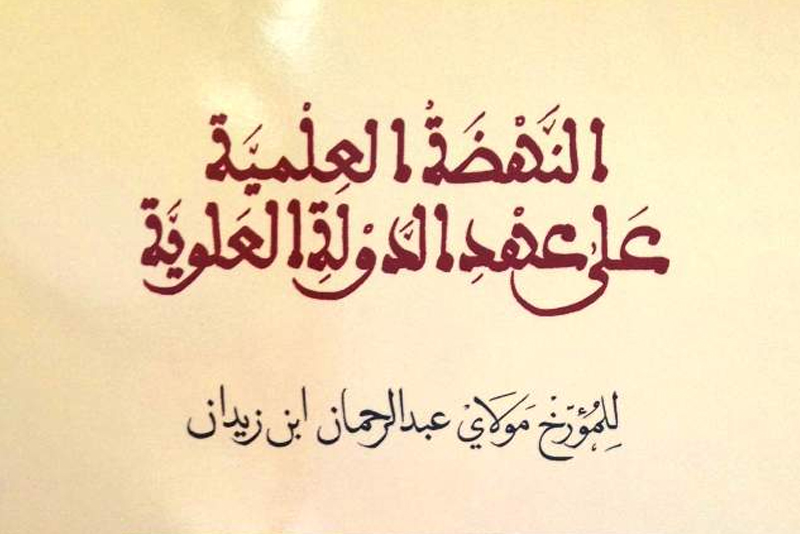 النَّهْضَةُ العِلْميَّة
عَلى عَهْدِ الدَّوْلَةِ العَلَويَّة
لِلمُؤرِّخ مَولَايْ عبد الرحمان ابن زيدان